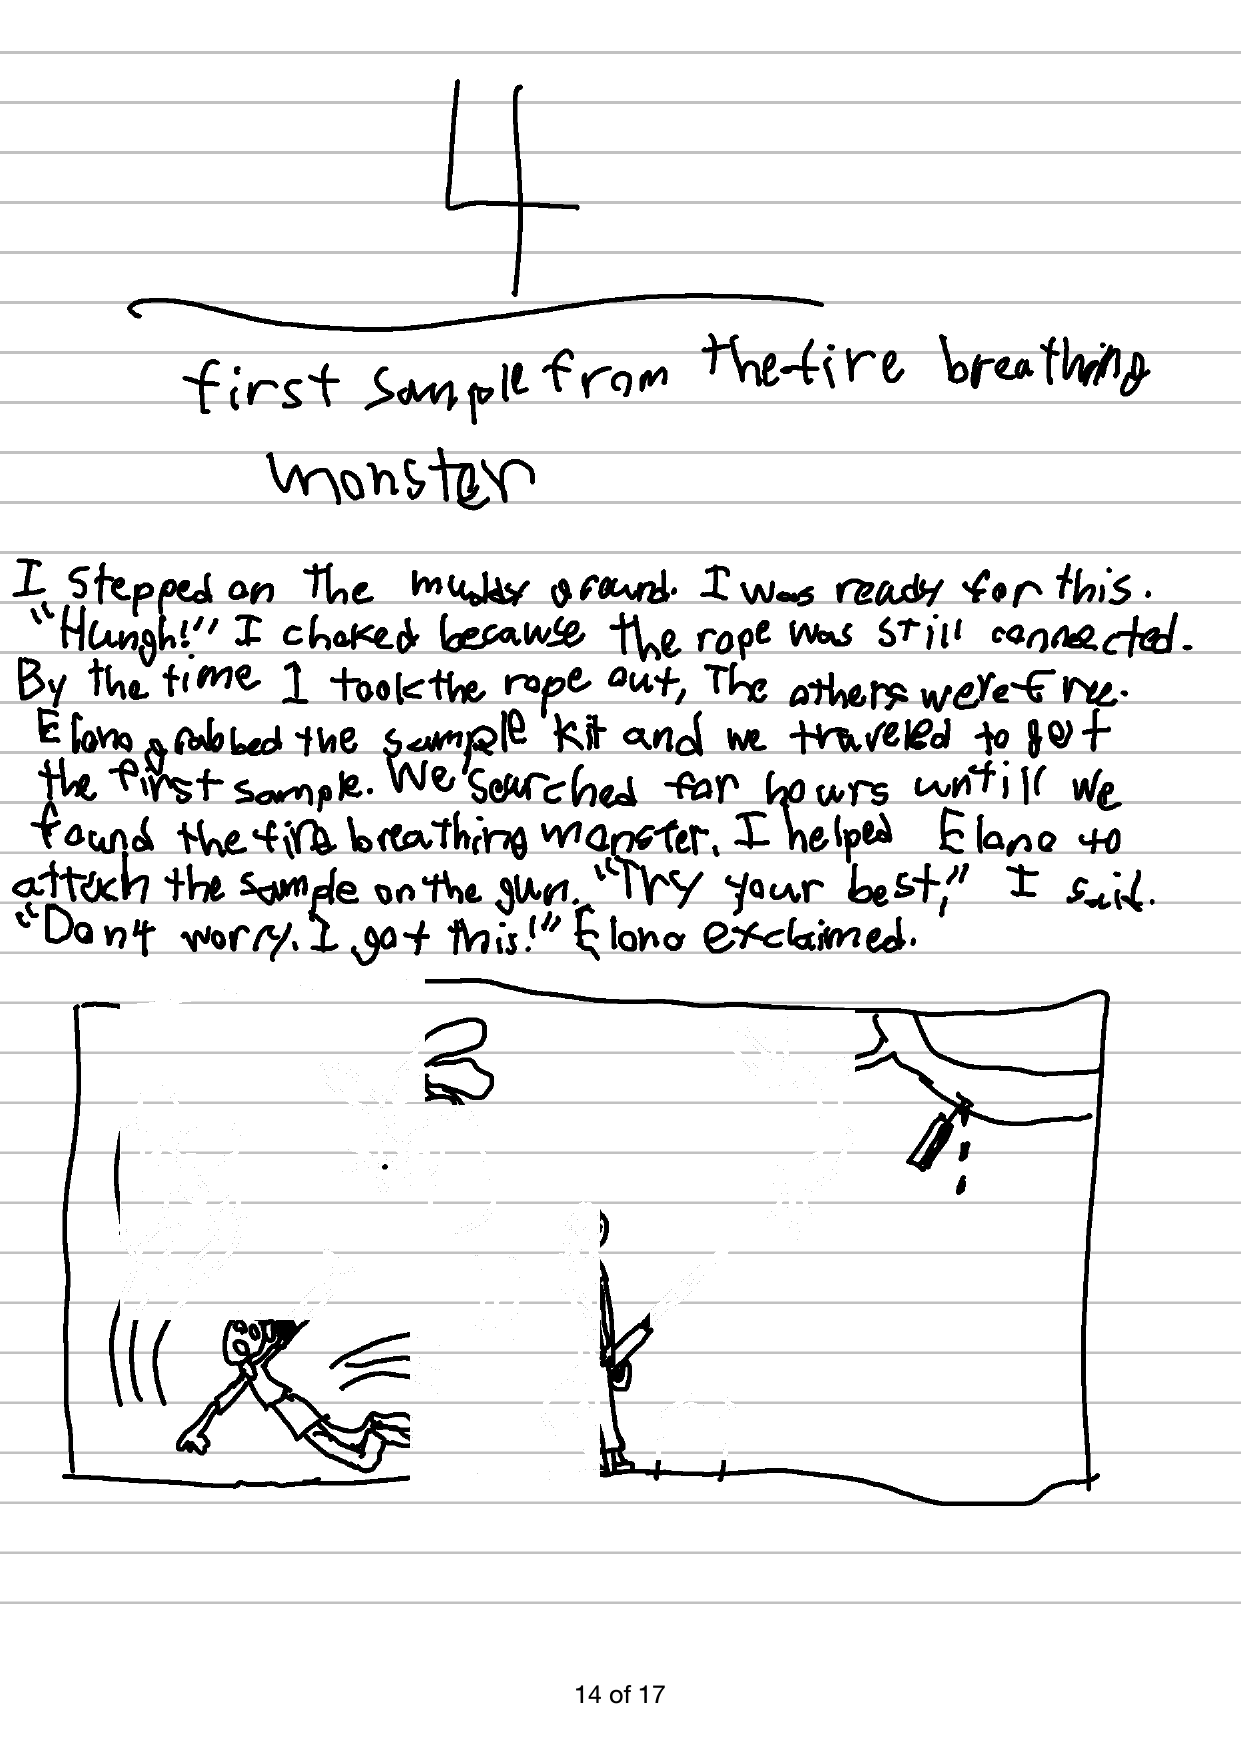 4
first sample from the fire breathing
monster
I stepped on the muddy ground. I was ready for this.
"Hungh!" I choked because the rope was still connected.
By the time I took the rope out, The others were free.
Elono grabbed the sample kit and we traveled to get
the first sample. We searched for hours untill we
found the fire breathing monster. I helped Elono to
attach the sample on the gun. "Try your best," I said.
"Don4 worry. I got this!" Elono exclaimed.
14 of 17